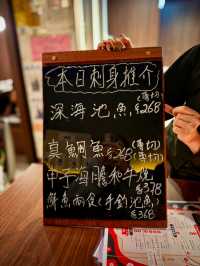 本日刺身推介
(薄切)
深海池魚$268
真鯛魚$268(薄切)
(厚切)
中子海膽和牛燒
$378
鮮魚兩食(手釣池魚)
$368